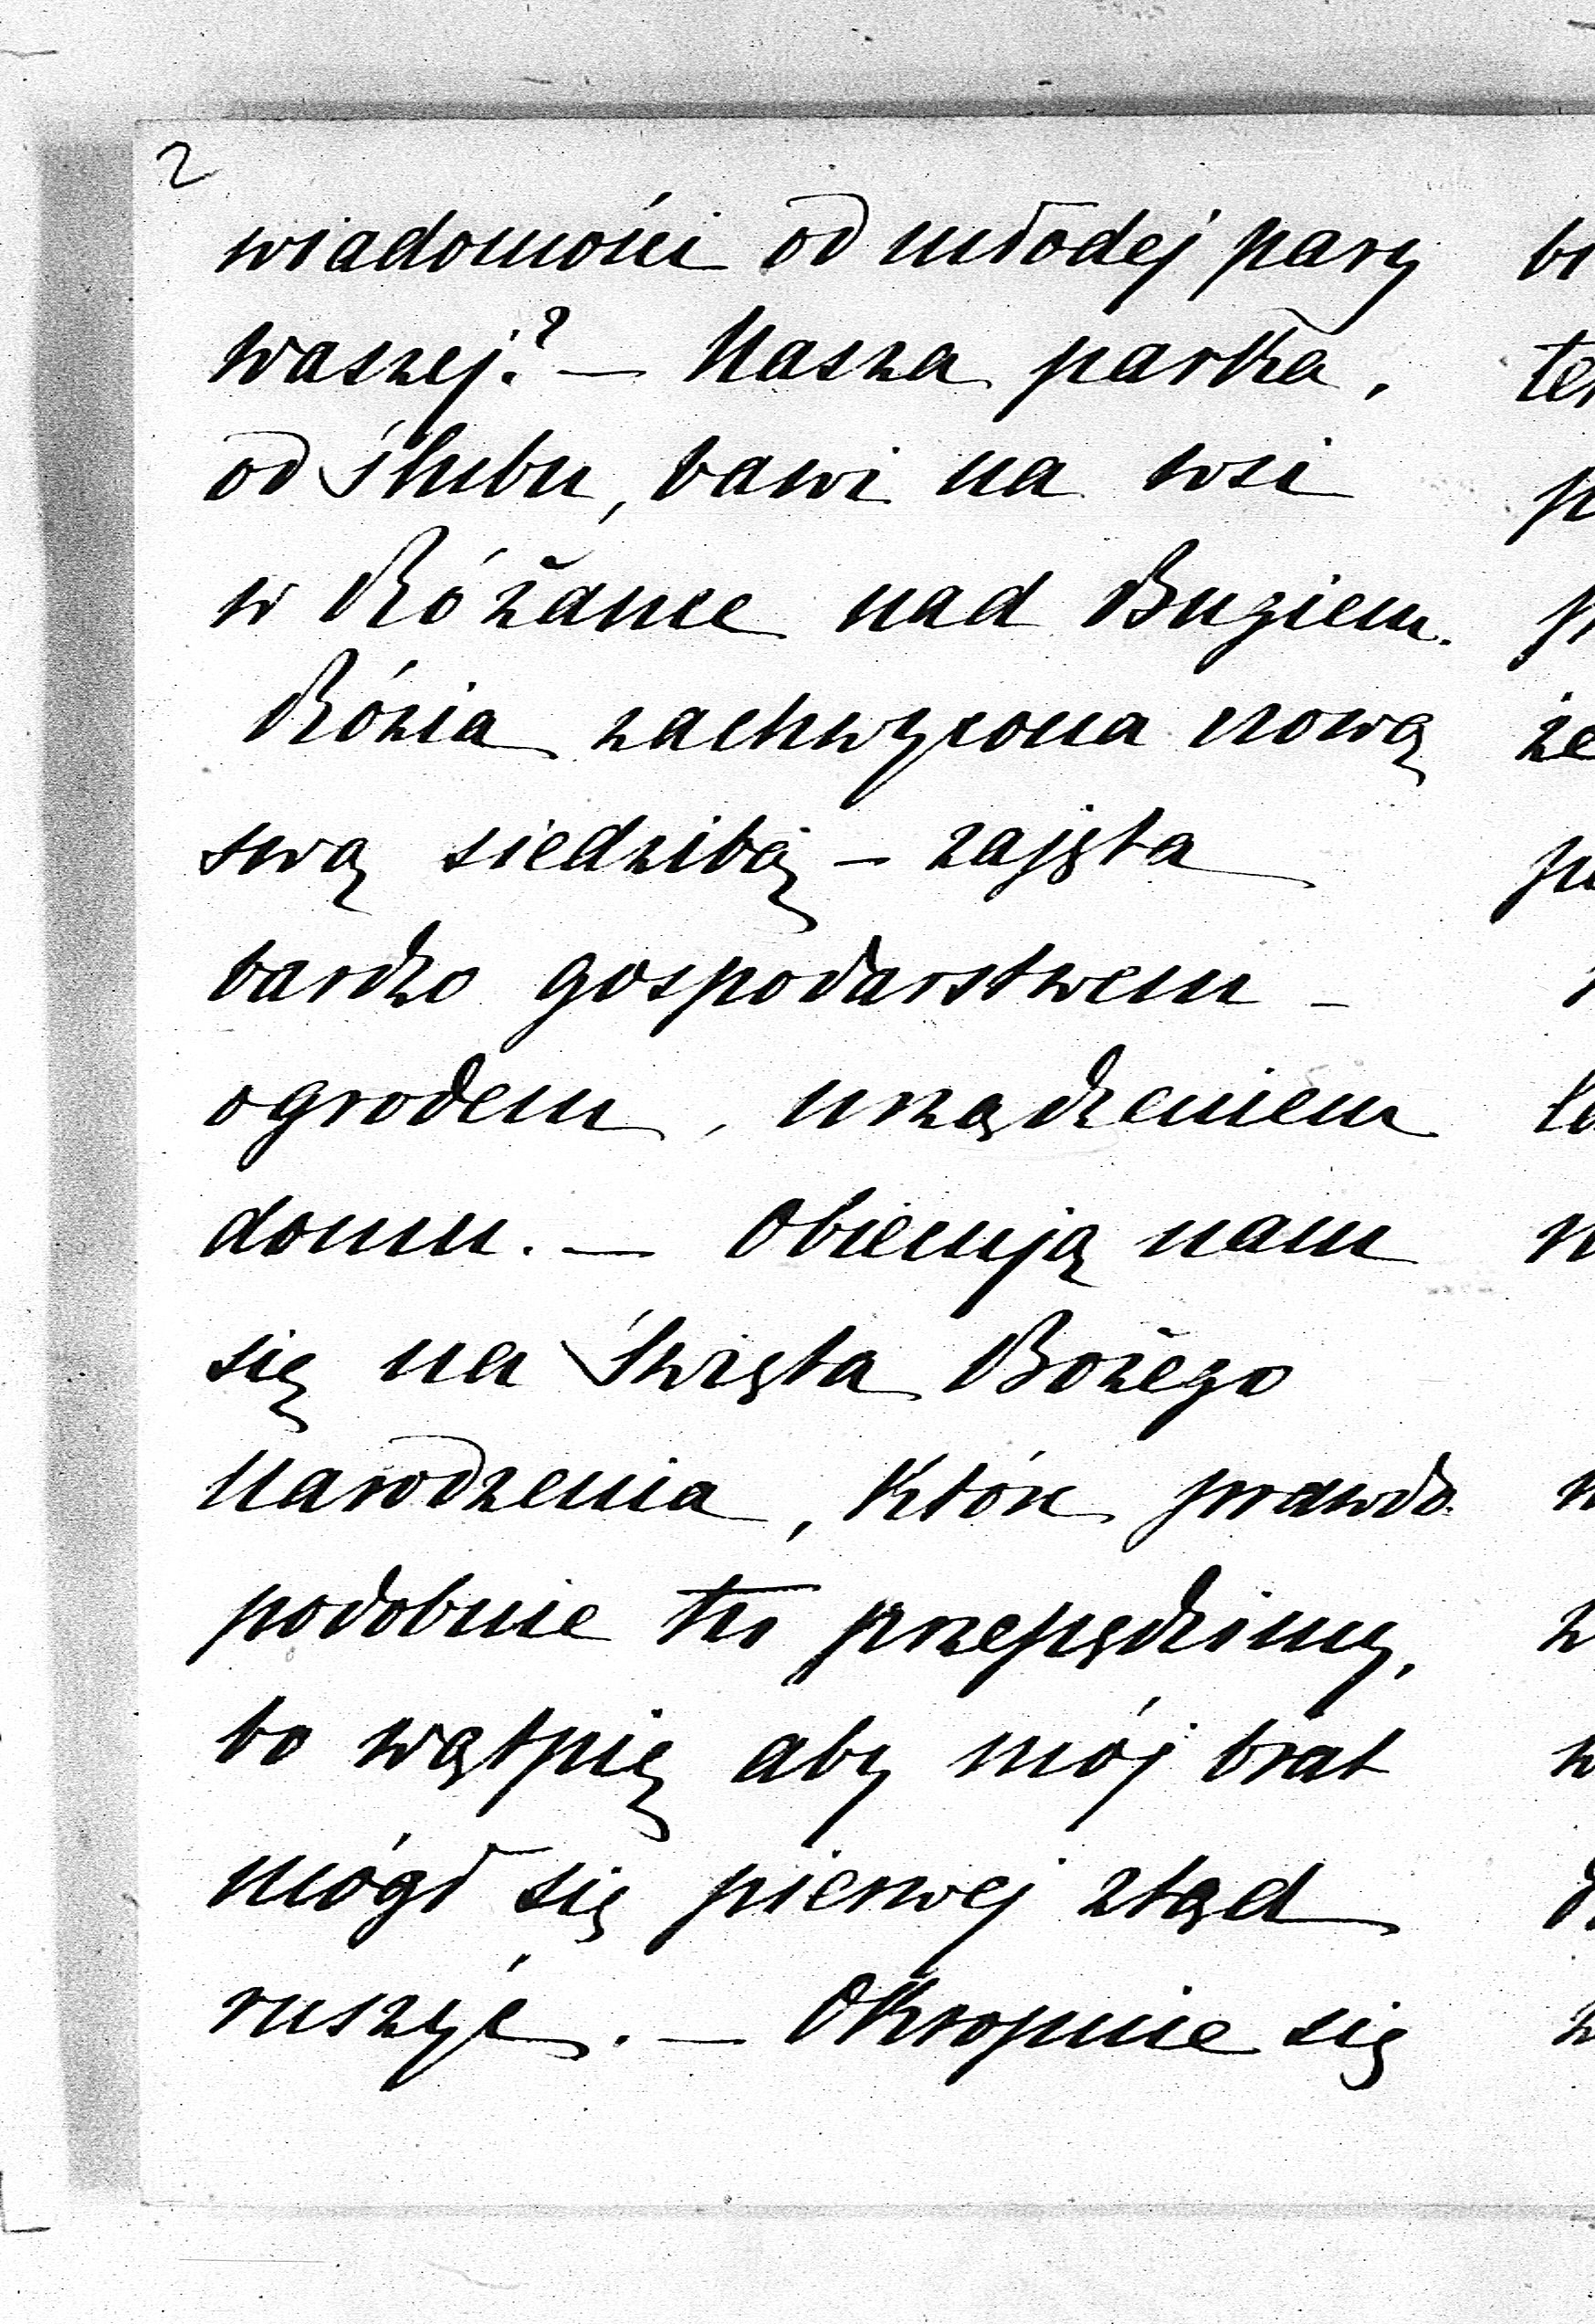 2
wiadomości od młodej pary
waszej? — Nasza parka,
od ślubu, bawi na wsi
w Różance nad Bugiem.
Rózia zachwycona nową
swą siedzibą – zajęta
bardzo gospodarstwem –
ogrodem, urządzeniem
domu. — Obiecują nam
się na Święta Bożego
Narodzenia, które prawdo-
podobnie tu przepędzimy,
bo wątpię aby mój brat
mógł się pierwej ztąd
ruszyć. — Okropnie się